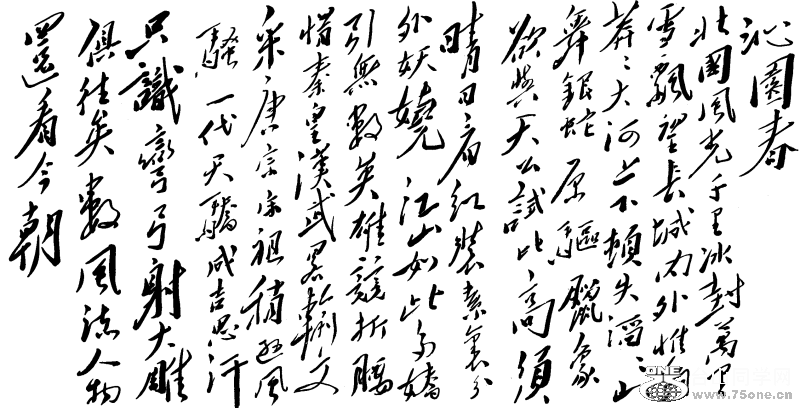 沁園春
北國風光千里冰封萬里
雪飄望長城內外惟餘
莽々大河上下頓失滔々山
舞銀蛇原驅臘象
欲與天公試比高須
晴日看紅裝素裹分
外妖嬈江山如此多嬌
引無數英雄競折腰
惜秦皇漢武略輸文
采唐宗宋祖稍遜風
騷一代天驕成吉思汗
只識彎弓射大雕
俱往矣數風流人物
還看今朝
ONE
www.75one.cn